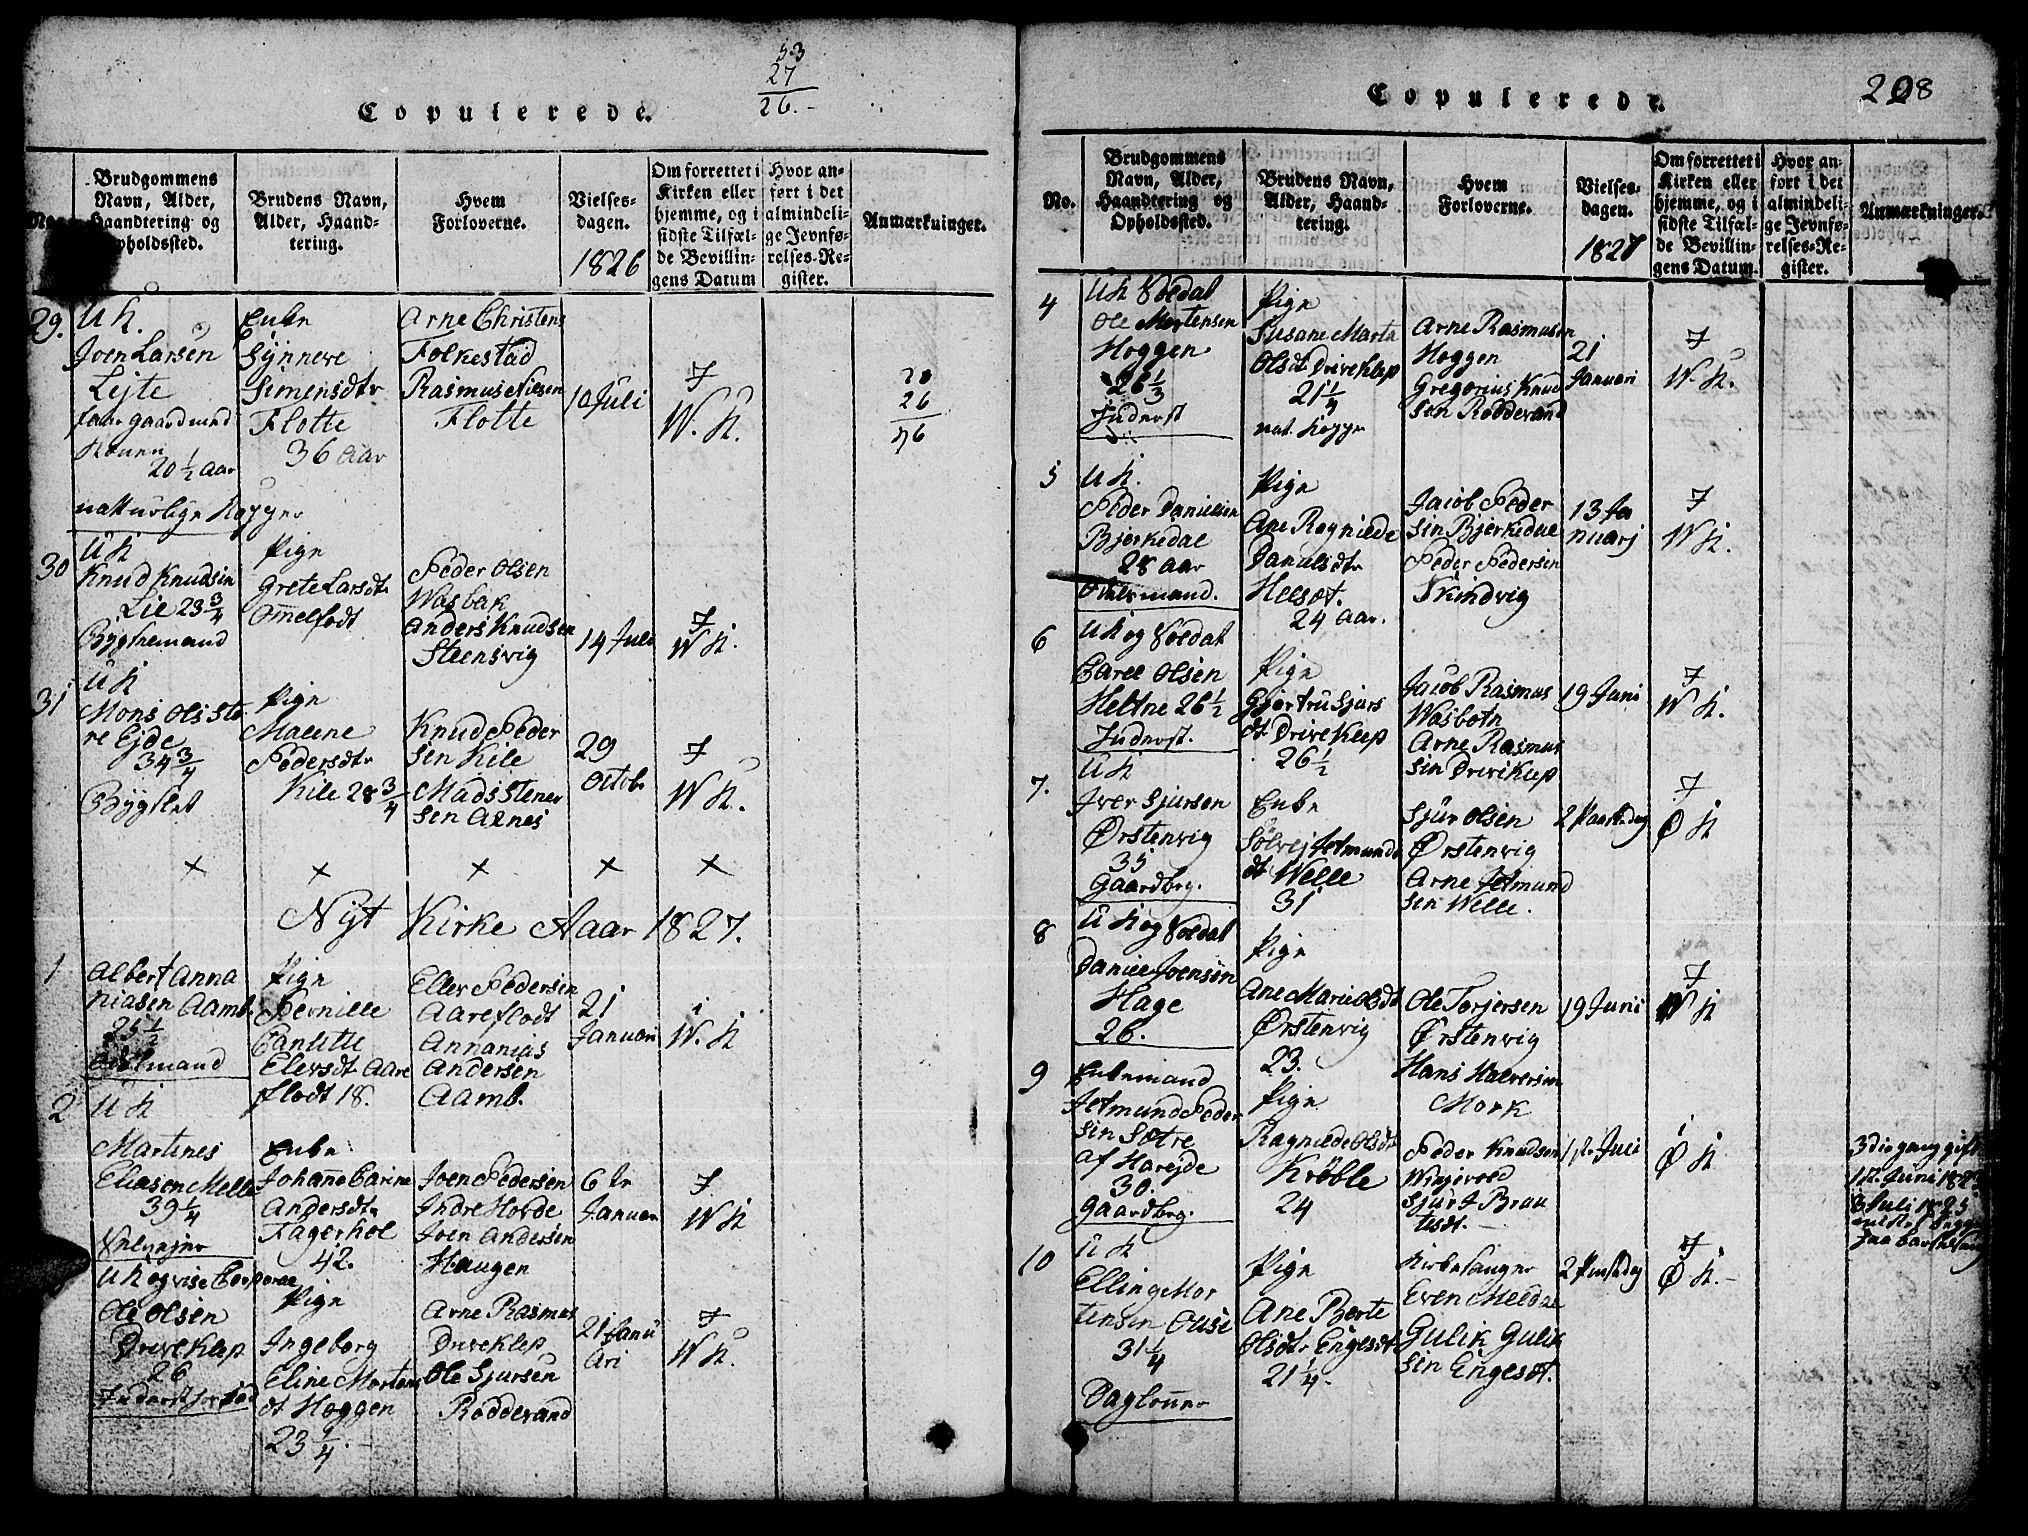 53
27
26.
Copulerede.
No.
Brudgommens
Navn, Alder,
Haandtering og
Opholdssted.
Brudens Navn,
Alder, Haand-
tering.
Hvem
Forloverne.
Vielses-
dagen.
1826
Om forrettet i
Kirken eller
hjemme, og i
sidste Tilfæl-
de Bevillin-
gens Datum
Hvor an-
ført i det
almindeli-
ge Jevnfø-
relses-Re-
gister.
Anmærkninger.
29.
U K.
Joen Larsen
Lejte
20 1/2 Aar
naturlige Kopper
Enke
Synneve
Simensdtr
Flotte
36 Aar
Arne Christens
Folkestad
Rasmus Nilsen
Flotte
10 Juli
F
W. K.
26
30
U K
Knud Knudsen
Lie 23 3/4
Bygselmand
Pige
Grete Larsdtr
Ommelfodt
Peder Olsen
Wasbak
Anders Knudsen
Steensvig
14 Juli
F
W K.
31
U K
Mons Ols Stø
re Ejde
34 3/4
Bygslet
Pige
Malene
Pedersdtr
Kile 28 3/4
Knud Peder
sen Kile
Mads Stener
sen Aarnes
29
Octob
F
W K.
× × × × ×
Nyt Kirke Aaar 1827.
1
Albert Anna
niasen Aamb.
25 1/2
Pige
Pernille
Canutte
Elersdt Aare
flodt 18.
Eller Pedersen
Aareflodt
Annanias
Andersen
Aamb.
21
Januari
W. K
2
U K
Martines
Eliasen Melle
39 1/4
Enke
Johanne Carine
Andersdtr
Fagerhol
42.
Joen Pedersen
Indre Hovde
Joen Andersen
Haugen
6 Jr
Januar
F
W K
U K og vise Corporal
Ole Olsen
Driveklep
26
Pige
Ingeborg
Eline Mortens
dt Hoggen
23 1/4
Arne Rasmus
Driveklep
Ole Sjursen
Roddevand
21 Janu
ari
F
W K.
208
Copulerede.
No.
Brudgommens
Navn, Alder,
Haandtering og
Opholdssted.
Brudens Navn,
Alder, Haand-
tering.
Hvem
Forloverne.
Vielses-
dagen.
1827
Om forrettet i
Kirken eller
hjemme, og i
sidste Tilfæl-
de Bevillin-
gens Datum.
Hvor an-
ført i det
almindeli-
ge Jevnfø-
relses-Re-
gister.
Anmærkninger.
4
U K Soldat
Ole Mortensen
Hoggen
26 1/3
Inderst
Pige
Susane Marta
Olsdt Driveklep
21 1/3
nat. Kopper
Arne Rasmusen
Hoggen
Gregorius Knud
sen Roddevand
21
Januari
F
W. K.
5
U K.
Peder Danielsen
Bjerkedal
28 Aar
Pige
Ane Ragnilde
Danielsdtr
Helset.
24 Aar.
Jacob Peder
sen Bjerkedal
Peder Pedersen
Trindvig
13 Ja
nuarj
F
W K.
6
U K og Soldat
Carel Olsen
Heltne 26 1/2
Inderst.
Pige
Gjertru Sjurs
dt Driveklep
26 1/2
Jacob Rasmus
Wasbotn
Arne Rasmus
sen Driveklep
19 Juni
F
W K.
7.
U K
Iver Sjursen
Ørstenvig
35
Gaardbrg.
Enke
Sølvej Jetmunds
dt Welle
31
Sjur Olsen
Ørstenvig
Arne Jetmund
sen Welle.
2 Paaskedag
F
Ø K
8
U K og Soldat
Daniel Joensen
Hage
26.
Pige
Ane Marie Olsdt
Ørstenvig
23.
Ole Torjersen
Ørstenvig
Hans Halversen
Mork
19 Junii
F
W K
9
Enkemand
Jetmund Peder
sen Sætre
af Harejde
30.
Gaardbrg.
Pige
Ragnilde Olsdt
Krøble
24
Peder Knudsen
Wiigevold
Sjur J Brau
tesdt.
1 Juli
Ø K
3die gang gift
12 Juni 182
3 Juli 1825
10
U K
Elling Mor
tensen Ouse
31 1/4
Daglonner
Pige
Ane Berte
Olsdtr Engesdt
21 1/4.
Kirkesanger
Even Meldal
Gulik Gulik
sen Engesdt.
2 Pinsedag
F
Ø K.